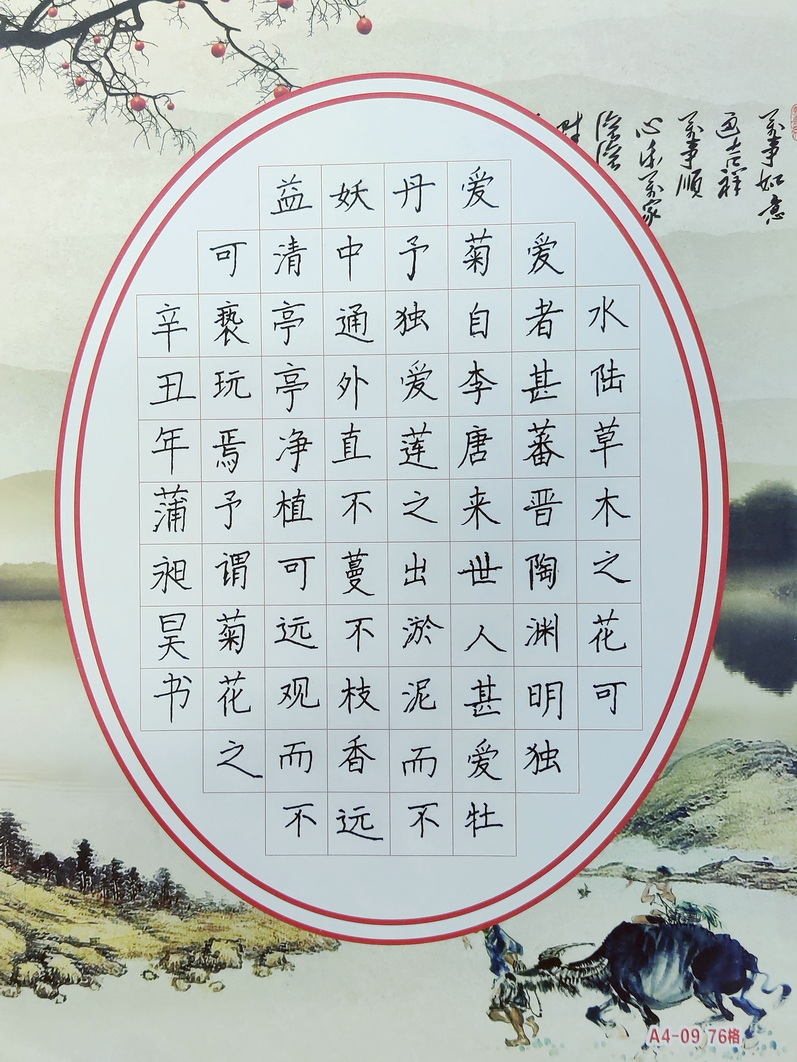 万事如意
万事顺
水陆草木之花可
爱者甚蕃晋陶渊明独
爱菊自李唐来世人甚爱牡
丹予独爱莲之出淤泥而不
妖中通外直不蔓不枝香远
益清亭亭净植可远观而不
可亵玩焉予谓菊花之
辛丑年蒲昶昊书
A4-09 76格